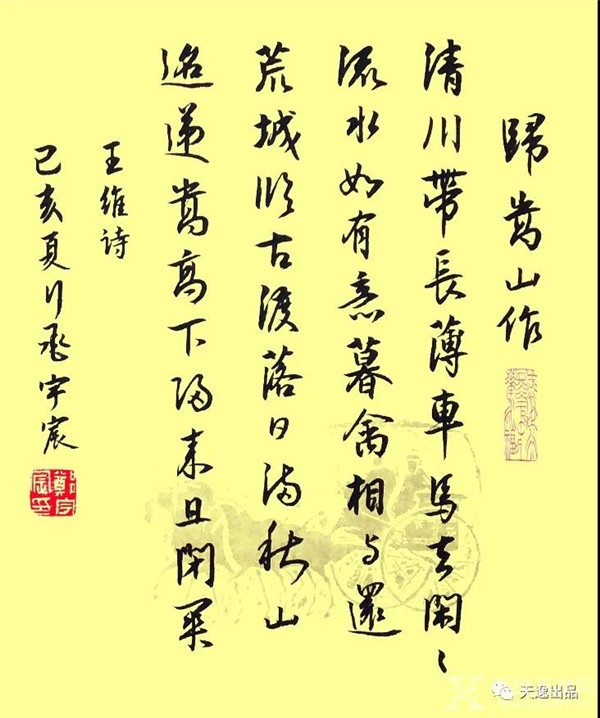 歸嵩山作
清川帶長薄車馬去閑〻
流水如有意暮禽相与還
荒城臨古渡落日滿秋山
迢遞嵩高下歸來且閉關
王維詩
己亥夏 宇宸
鄭宇宸印
天逸出品